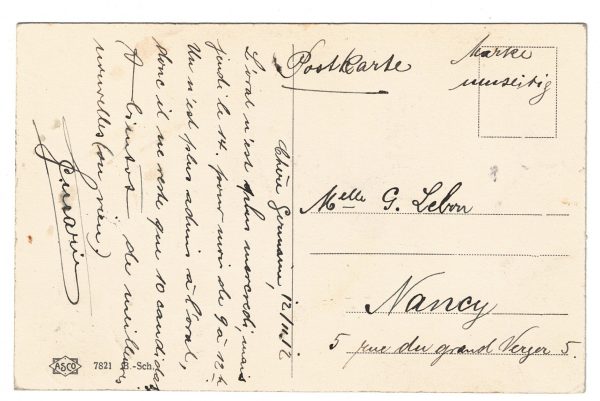 Postkarte
Marke
umseitig
Chère Germaine,
L'oral n'est plus mercredi, mais
jeudi le 14. pour moi de 9 à 12 h.
Un n'est plus admis à l'oral,
donc il ne reste que 10 candidats
A bientôt de meilleures
nouvelles (ou rien)
Melle G. Lebon
Nancy
5 rue du grand Verger 5.
ASCO 7821 B.-Sch.